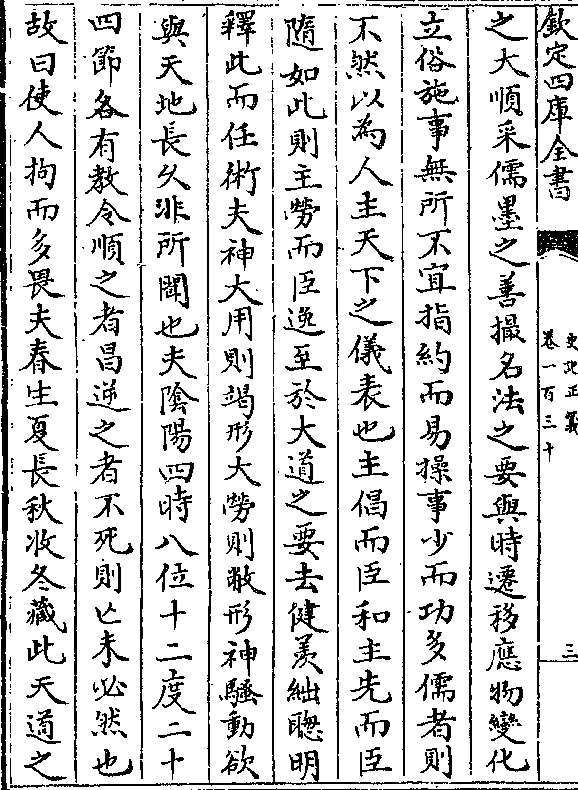 欽定四庫全書
史記正義
卷一百三十
三
之大順采儒墨之善撮名法之要與時遷移應物變化
立俗施事無所不宜指約而易操事少而功多儒者則
不然以為人主天下之儀表也主倡而臣和主先而臣
隨如此則主勞而臣逸至於大道之要去健羨絀聰明
釋此而任術夫神大用則竭形大勞則敝形神騷動欲
與天地長久非所聞也夫陰陽四時八位十二度二十
四節各有教令順之者昌逆之者不死則亡未必然也
故曰使人拘而多畏夫春生夏長秋收冬藏此天道之